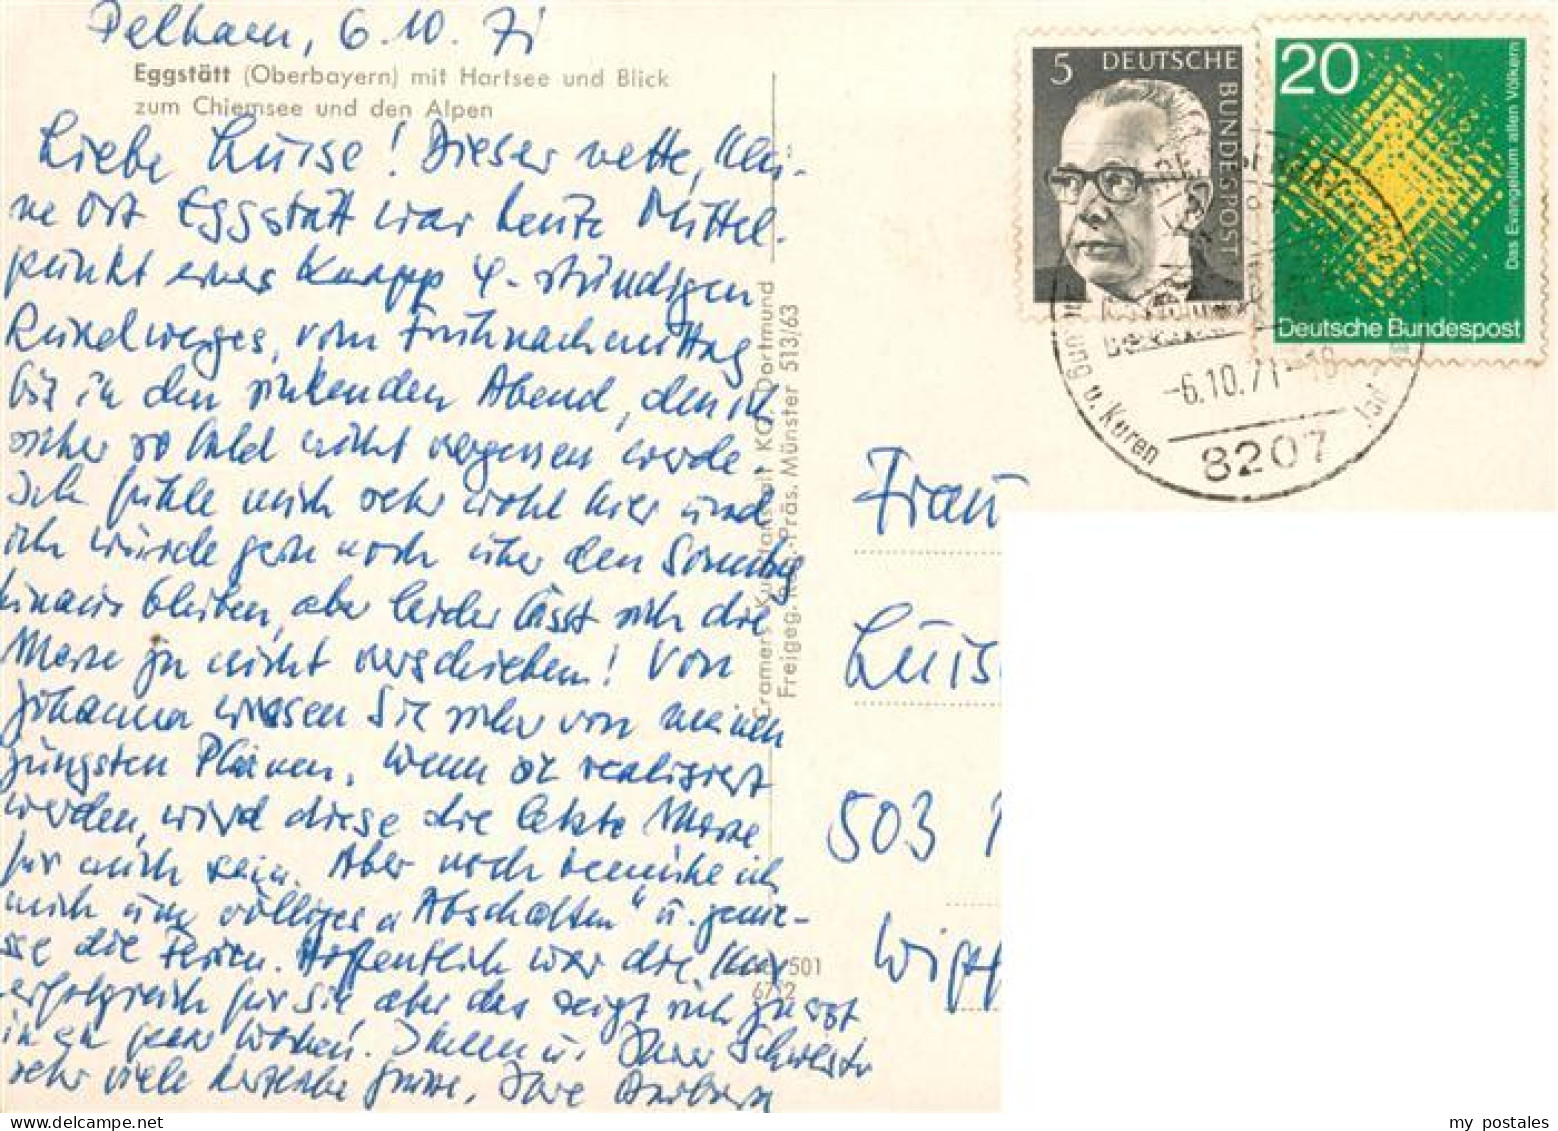 Pelham, 6.10.71
Eggstätt (Oberbayern) mit Hartsee und Blick
zum Chiemsee und den Alpen
Liebe Luise! Dieser nette, klei-
ne Ort Eggstätt war heute Mittel-
punkt eines knapp 4-stündigen
vom Frühnachmittag
bis in den sinkenden Abend, den ich
sicher so bald nicht vergessen werde.
Ich fühle mich sehr wohl hier und
ich würde gern noch über den Sonntag
hinaus bleiben, aber leider lässt sich die
Messe ja nicht verschieben! Von
Johanna wissen Sie sicher von meinen
jüngsten Plänen. Wenn sie realisiert
werden, wird diese die letzte Messe
für mich sein. Aber noch bemühe ich
mich um völliges „Abschalten" u. genie-
sse die Ferien. Hoffentlich war die Kur
erfolgreich für Sie aber das zeigt sich ja erst
in ein paar Wochen. Ihnen u. Ihrer Schwester
sehr viele herzliche Grüsse, Ihre Barbara
Cramers Kunstanstalt KG, Dortmund
Freigeg. Reg.-Präs. Münster 513/63
501
6712
5 DEUTSCHE BUNDESPOST
20
Das Evangelium allen Völkern
Deutsche Bundespost
-6.10.71-18
u. Kuren
8207
Frau
Luis
503
Witt
my postales